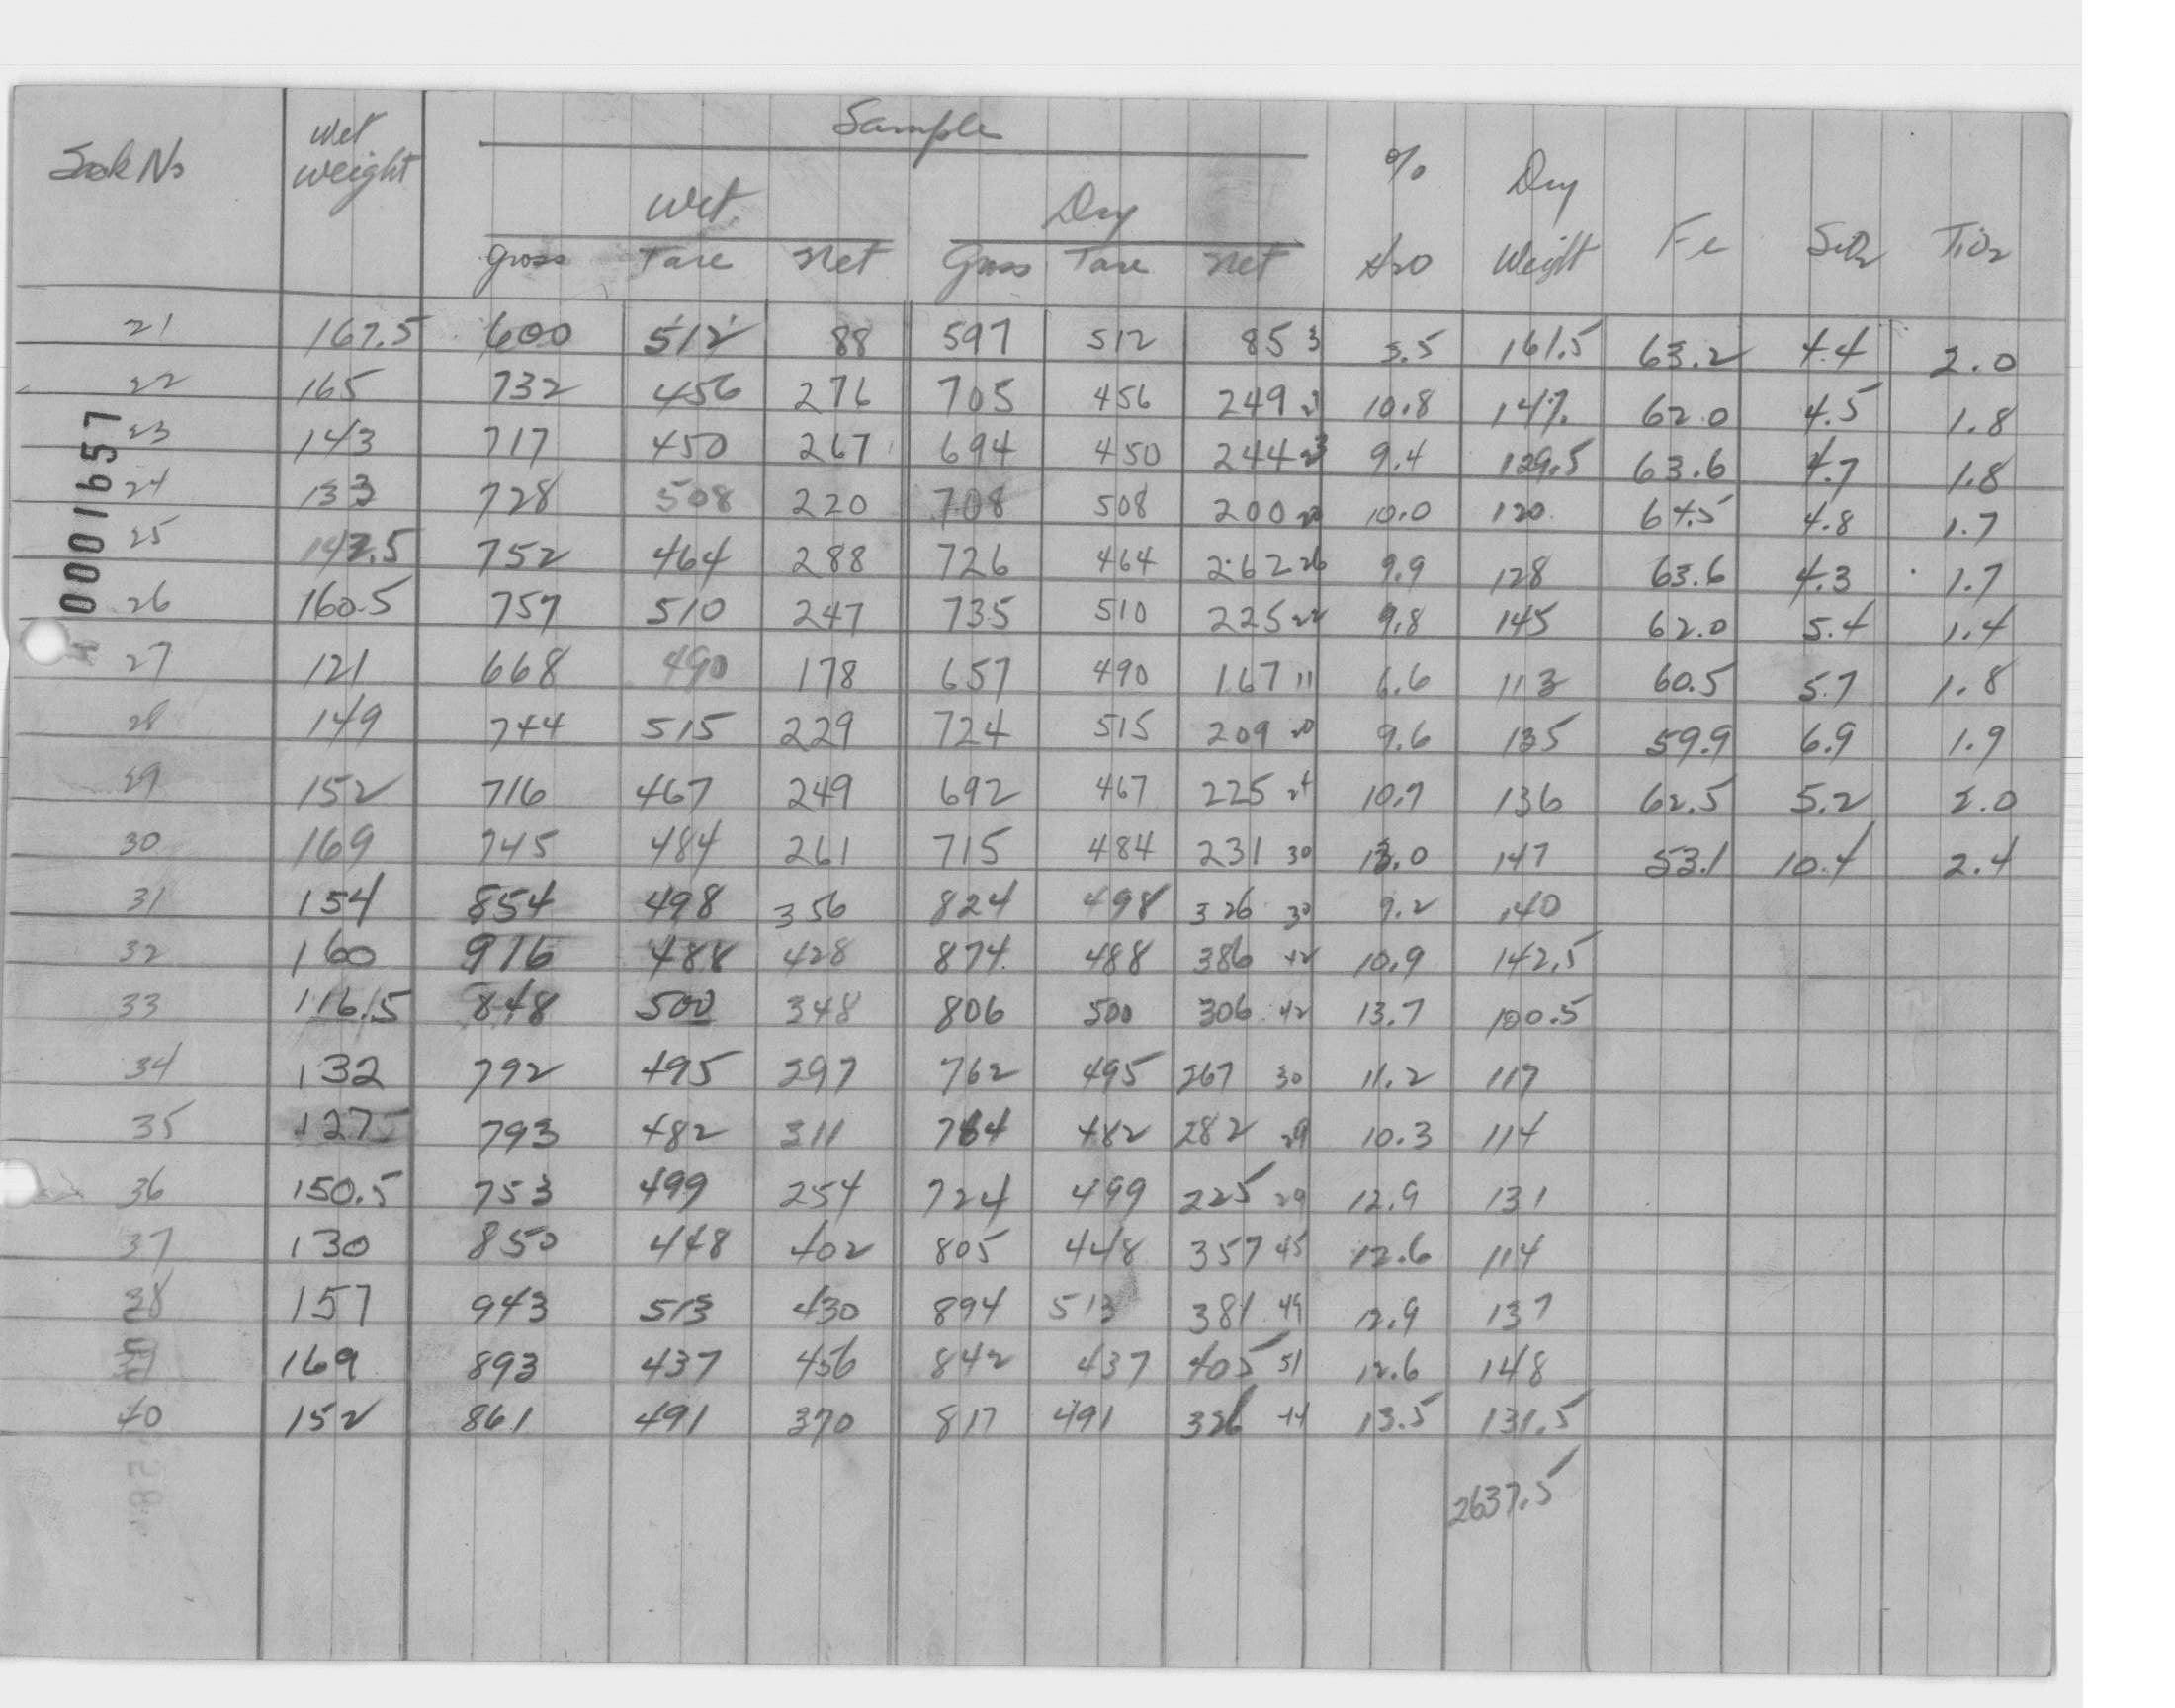 Sack No Wet Weight Sample % H2O Dry Weight Fe SiO2 TiO2
Wet Dry
Gross Tare Net Gross Tare Net
21 167.5 600 512 88 597 512 85 3 3.5 161.5 63.2 4.4 2.0
22 165 732 456 276 705 456 249 10.8 147. 62.0 4.5 1.8
23 143 717 450 267 694 450 244 23 9.4 129.5 63.6 4.7 1.8
24 133 728 508 220 708 508 200 20 10.0 120. 64.5 4.8 1.7
25 142.5 752 464 288 726 464 262 26 9.9 128 63.6 4.3 1.7
26 160.5 757 510 247 735 510 225 22 9.8 145 62.0 5.4 1.4
27 121 668 490 178 657 490 167 11 6.6 113 60.5 5.7 1.8
28 149 744 515 229 724 515 209 20 9.6 135 59.9 6.9 1.9
29 152 716 467 249 692 467 225 24 10.7 136 62.5 5.2 2.0
30 169 745 484 261 715 484 231 30 13.0 147 53.1 10.4 2.4
31 154 854 498 356 824 498 326 30 9.2 140
32 160 916 488 428 874 488 386 42 10.9 142.5
33 116.5 848 500 348 806 500 306 42 13.7 100.5
34 132 792 495 297 762 495 267 30 11.2 117
35 127 793 482 311 764 482 282 29 10.3 114
36 150.5 753 499 254 724 499 225 29 12.9 131
37 130 850 448 402 805 448 357 45 12.6 114
38 157 943 513 430 894 513 381 49 12.9 137
39 169 893 437 456 842 437 405 51 12.6 148
40 152 861 491 370 817 491 326 44 13.5 131.5
2637.5
0001657